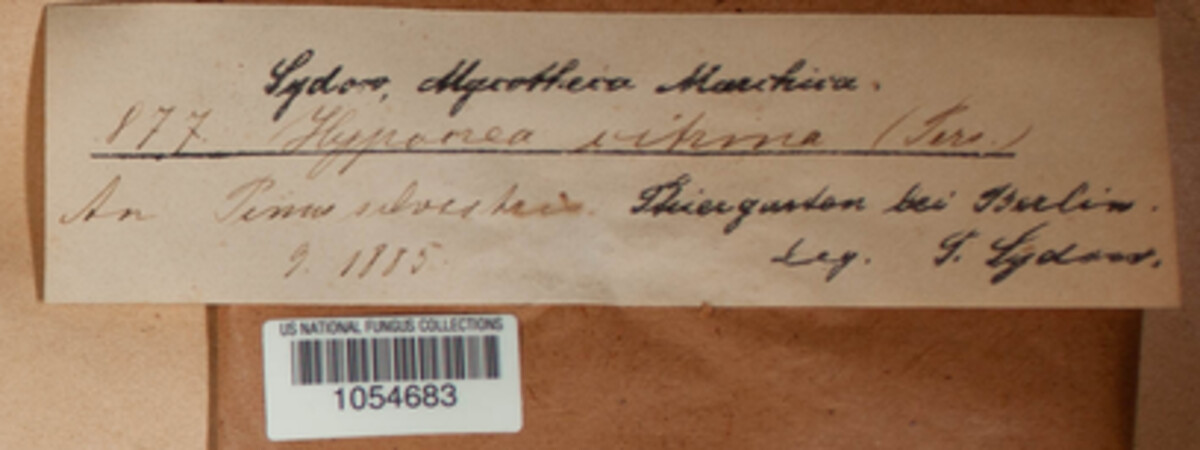 Sydow, Mycotheca Marchica.
877. Hypocrea citrina (Pers.)
An Pinus silvestris. Thiergarten bei Berlin.
9. 1885. Leg. P. Sydow.
US NATIONAL FUNGUS COLLECTIONS
1054683